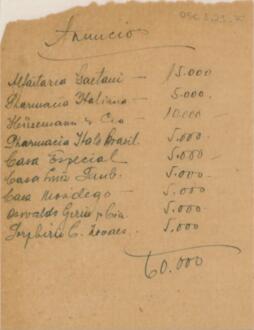 Annuncios
Alfaitaria Gaetani — 15.000
Pharmacia Italiana — 5.000
& Cia — 10.000
Pharmacia Italo Brasil. 5.000
Casa Especial 5.000
Casa Luiz 5.000
Casa Mondego 5.000
Osvaldo & Cia. 5.000
C. Novaes. 5.000
60.000